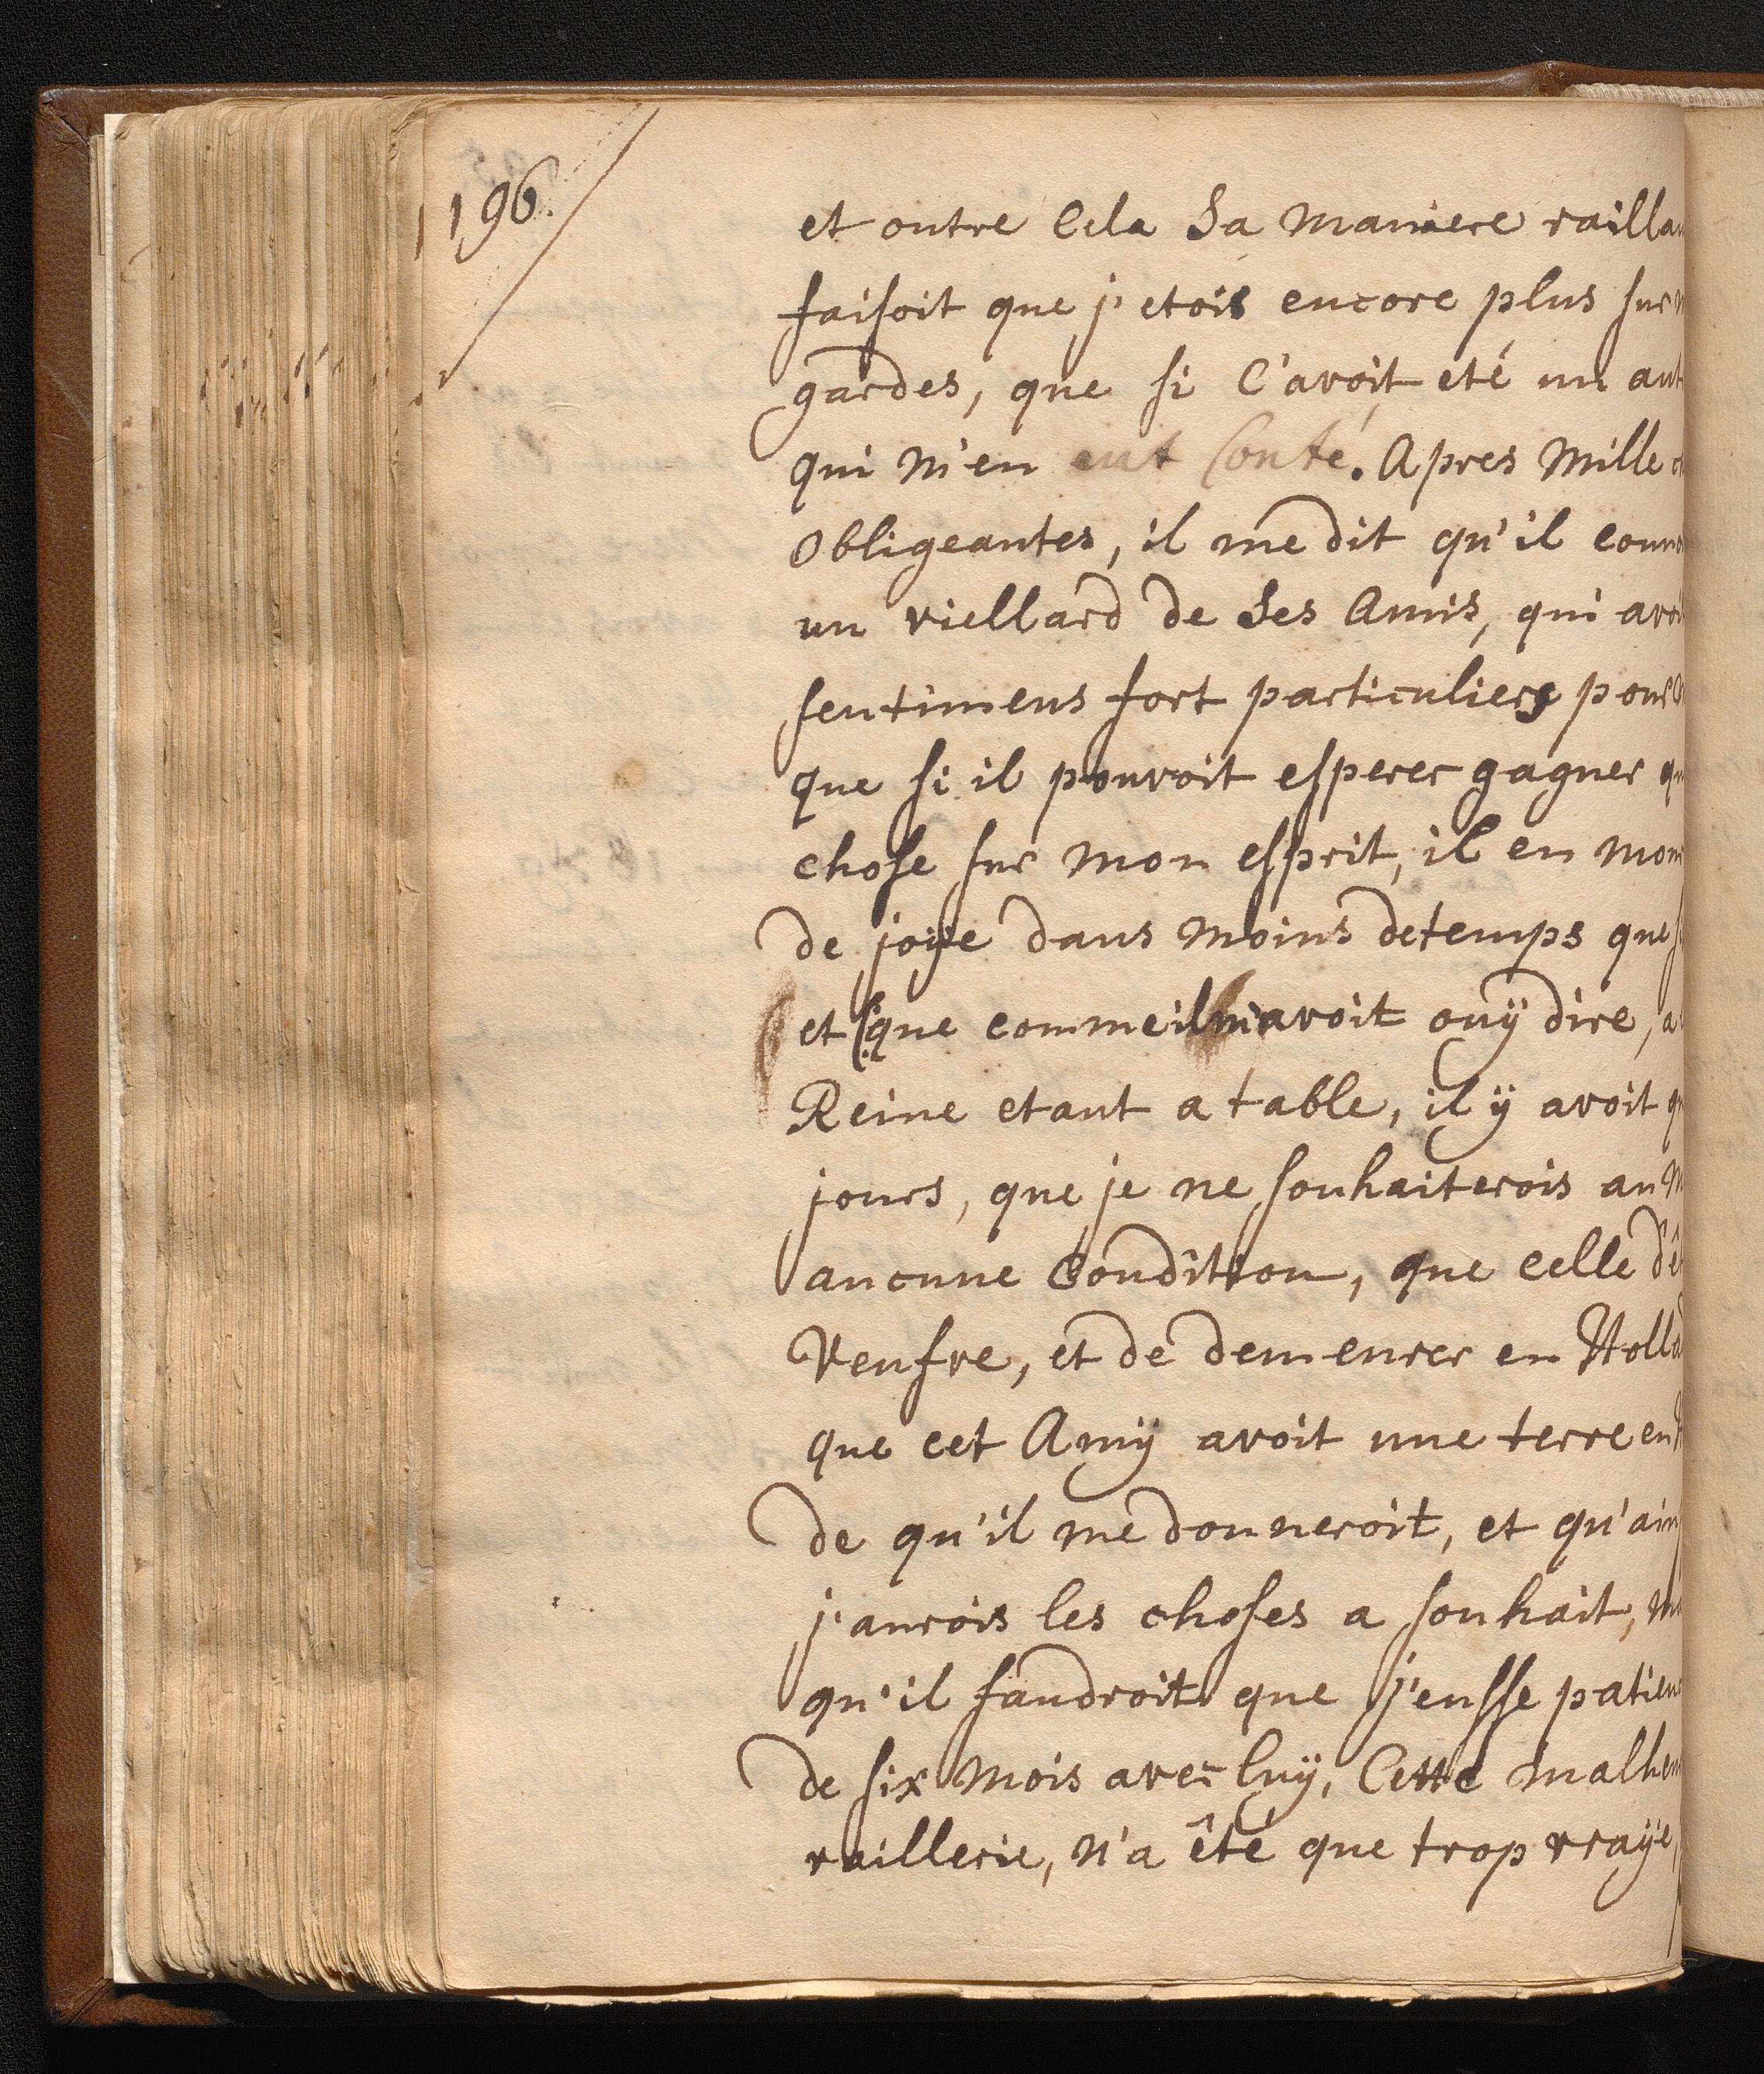 196.
et outre Cela Sa maniere railla
faisoit que j'etois encore plus sur
gardes, que si C'avoit eté un aut
qui m'en eut Conté. Apres mille
Obligeantes, il me dit qu'il conno
un viellard de Ses Amis, qui avoi
sentimens fort particuliers pour
que si il pouvoit esperer gagner qu
chose sur mon esprit, il en mour
de joÿe dans moins detemps que
et (que comme il m'avoit ouÿ dire, a
Reine etant a table, il ÿ avoit q
jours, que je ne souhaiterois au m
aucune Condîtion, que celle d'êt
Veufve, et de demeurer en Holla
que cet Amÿ avoit une terre en
de qu'il me donneroit, et qu'ain
j'aurois les choses a souhait, m
qu'il faudroit que j'eusse patien
de six mois avec luÿ, Cette malheu
raillerie, n'a êté que trop vraÿe,